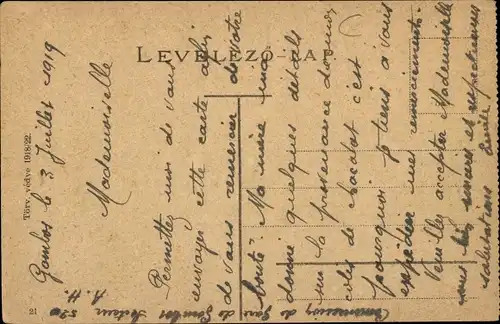 LEVELEZŐ-LAP
Törv. védve 1918/22.
21
Gombos le 3 Juillet 1919
Mademoiselle
Permettez moi de vous
envoyer cette carte afin
de vous remercier de votre
bonté. Ma mère m'a
donné quelques détails
sur la provenance du
colis de chocolat c'est
pourquoi je tiens à vous
expédier mes remerciements.
Veuillez accepter Mademoiselle
mes sincères et respectueuses
salutations
Emile
de Gare de Gombos Secteur 510
A.H.